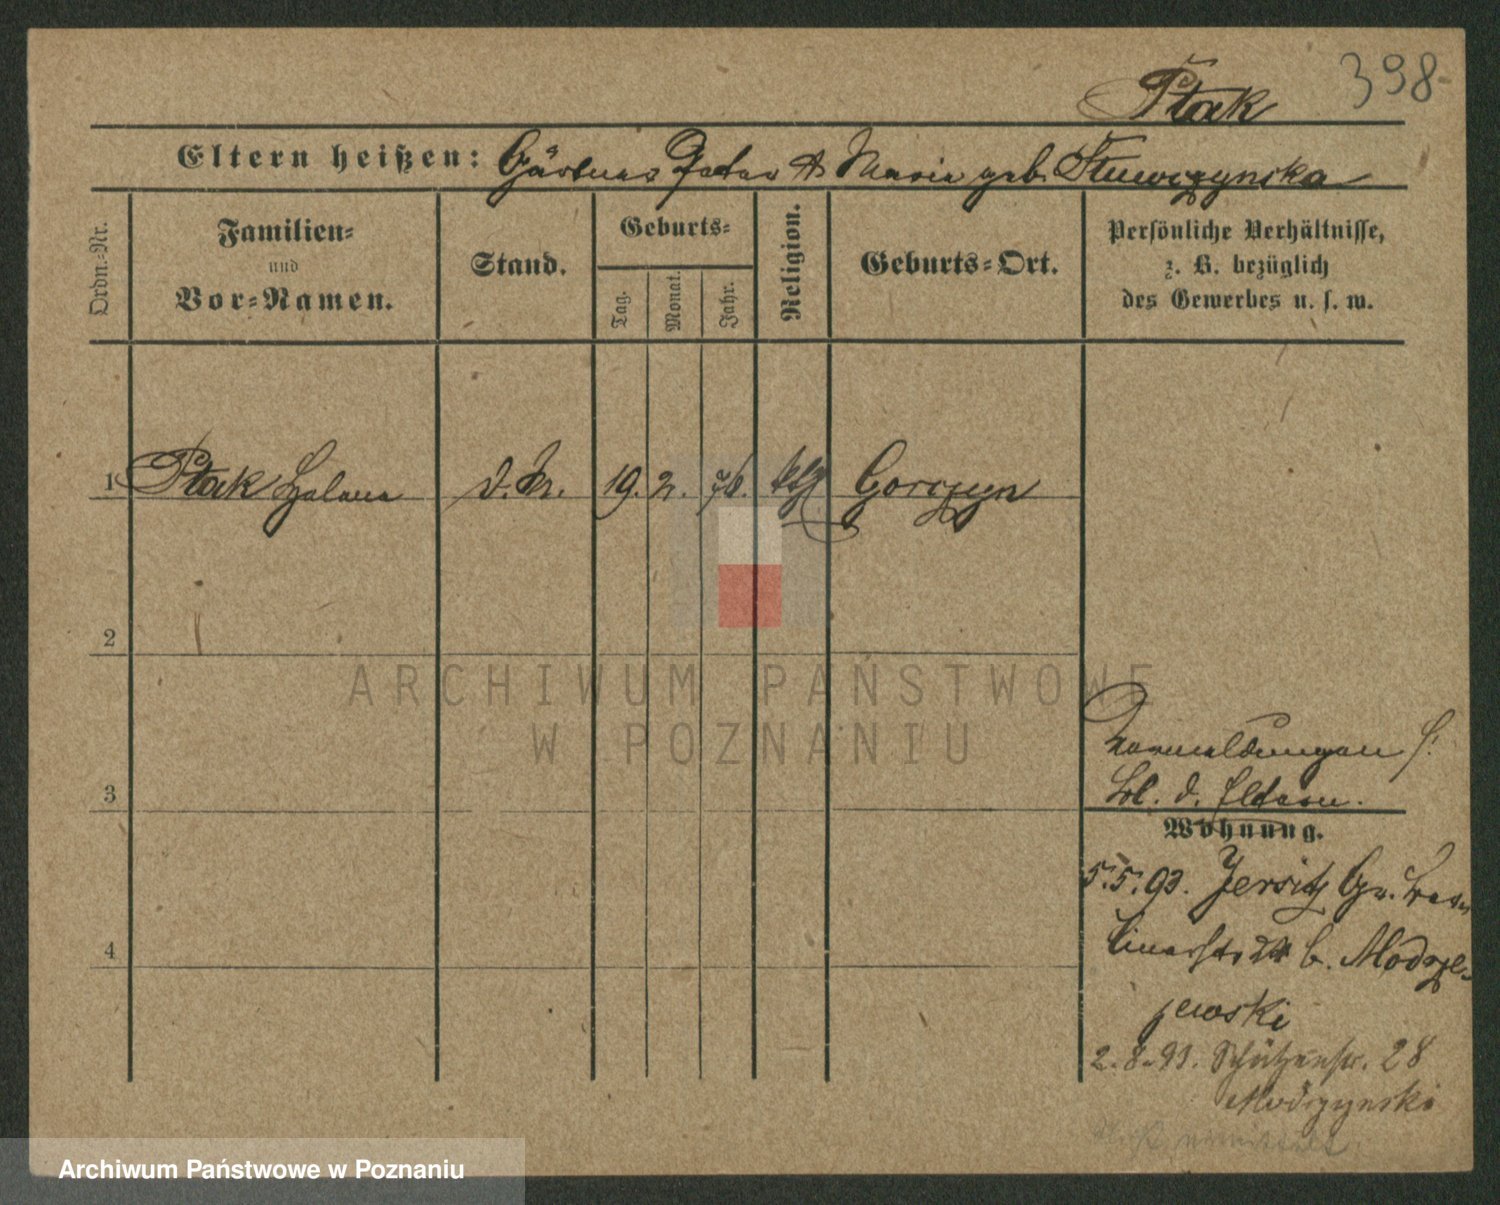 398-
Ptak
Eltern heißen: Gärtner Peter & Marie geb.
Ordn.-Nr.
Familien-
und
Vor-Namen.
Stand.
Geburts-
Tag.
Monat.
Jahr.
Religion.
Geburts-Ort.
Persönliche Verhältnisse,
z. B. bezüglich
des Gewerbes u. s. w.
1 Ptak Helene d. M. 19. 2. 76. ktl. Gorczyn
2
3
4
Vormeldungen s.
Bl. d. Eltern.
Wohnung.
5.5.93. Jersitz Gr. Ber-
linerstr. b. Modrze-
jewski
2.8.93. Schützenstr. 28
ARCHIWUM PAŃSTWOWE
W POZNANIU
Archiwum Państwowe w Poznaniu